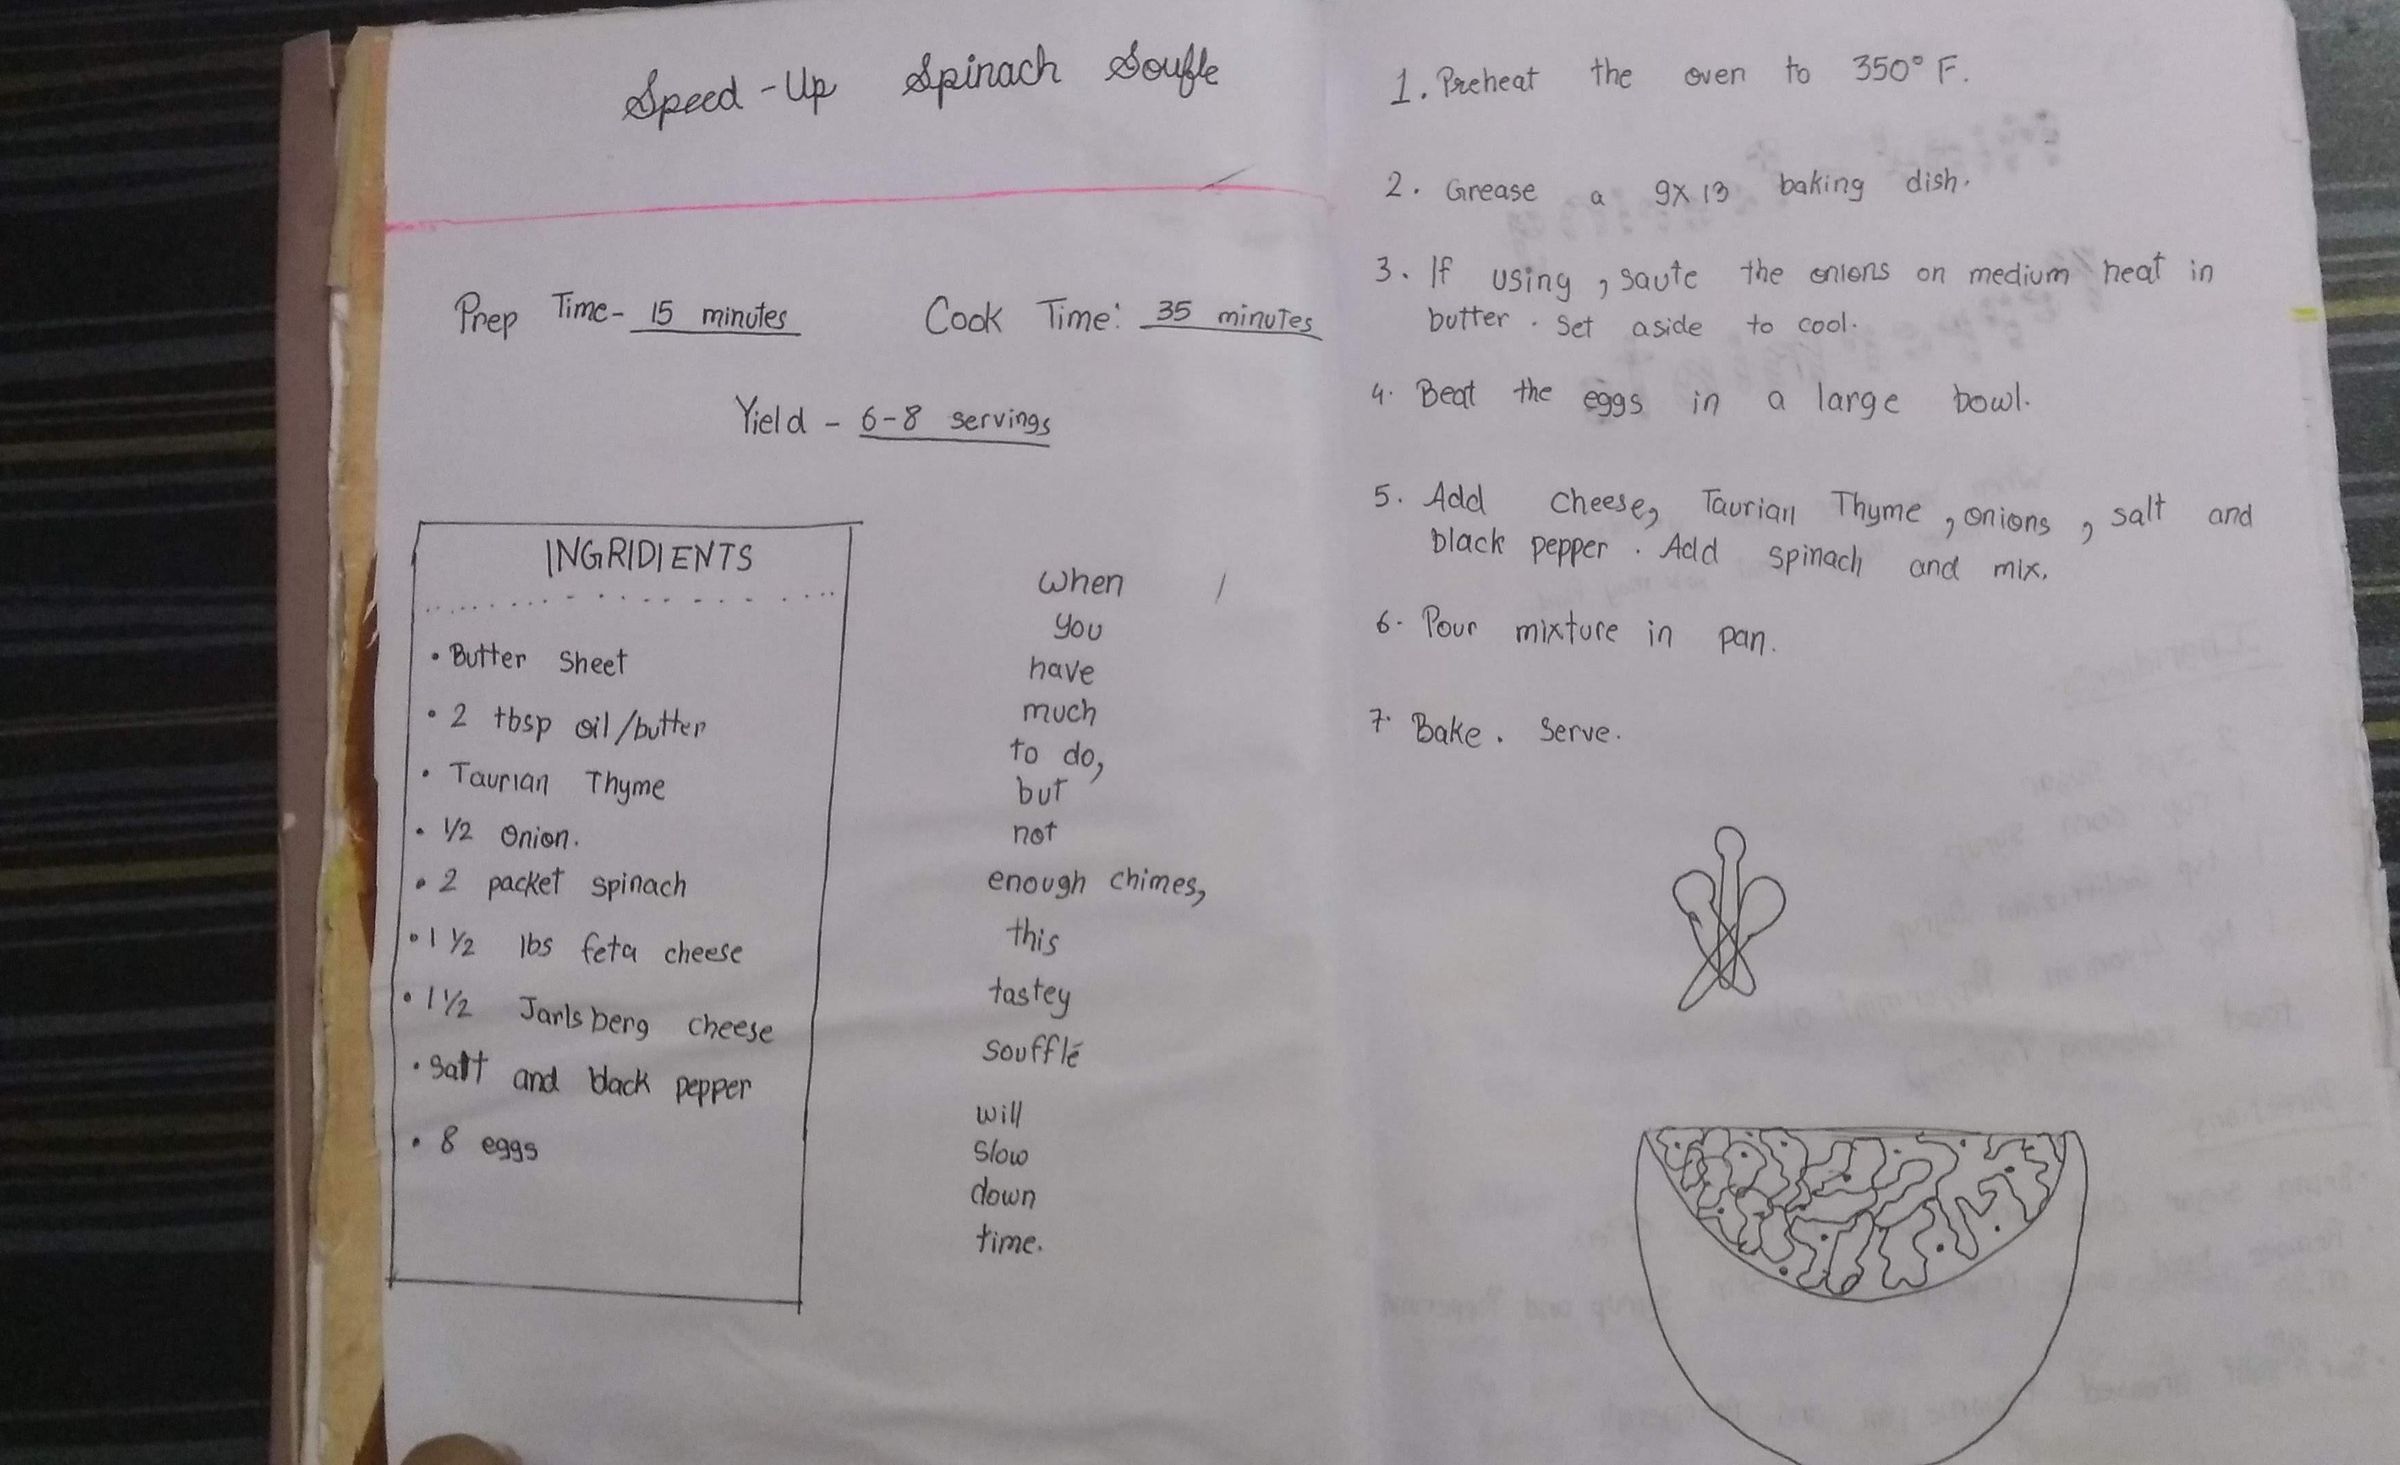 Speed-Up Spinach Soufle
Prep Time- 15 minutes Cook Time: 35 minutes
Yield - 6-8 servings
INGRIDIENTS
• Butter sheet
• 2 tbsp oil/butter
• Taurian Thyme
• 1/2 Onion.
• 2 packet spinach
• 1 1/2 lbs feta cheese
• 1 1/2 Jarlsberg cheese
• Salt and black pepper
• 8 eggs
When
you
have
much
to do,
but
not
enough chimes,
this
tastey
soufflé
will
slow
down
time.
1. Preheat the oven to 350° F.
2. Grease a 9x13 baking dish.
3. If using, saute the onions on medium heat in
butter. Set aside to cool.
4. Beat the eggs in a large bowl.
5. Add cheese, Taurian Thyme, onions, salt and
black pepper. Add spinach and mix.
6. Pour mixture in pan.
7. Bake. Serve.